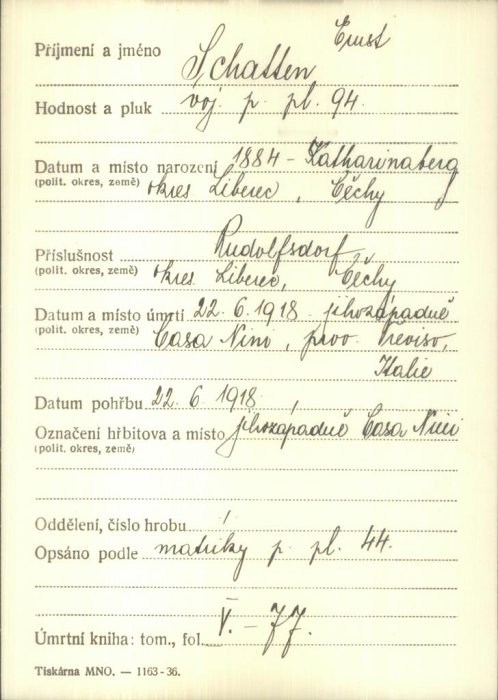 Ernst
Příjmení a jméno Schatten
Hodnost a pluk voj. p. pl. 94.
Datum a místo narození 1884 - Katharinaberg
(polit. okres, země) okres Liberec, Čěchy
Příslušnost Rudolfsdorf,
(polit. okres, země) okres Liberec, Čěchy
Datum a místo úmrtí 22. 6. 1918 jihozápadně
(polit. okres, země) Casa Nini, prov. Treviso,
Italie
Datum pohřbu 22. 6. 1918,
Označení hřbitova a místo jihozápadně Casa Nini
(polit. okres, země)
Oddělení, číslo hrobu /
Opsáno podle matriky p. pl. 44.
Úmrtní kniha: tom., fol. V. - 77.
Tiskárna MNO. — 1163-36.